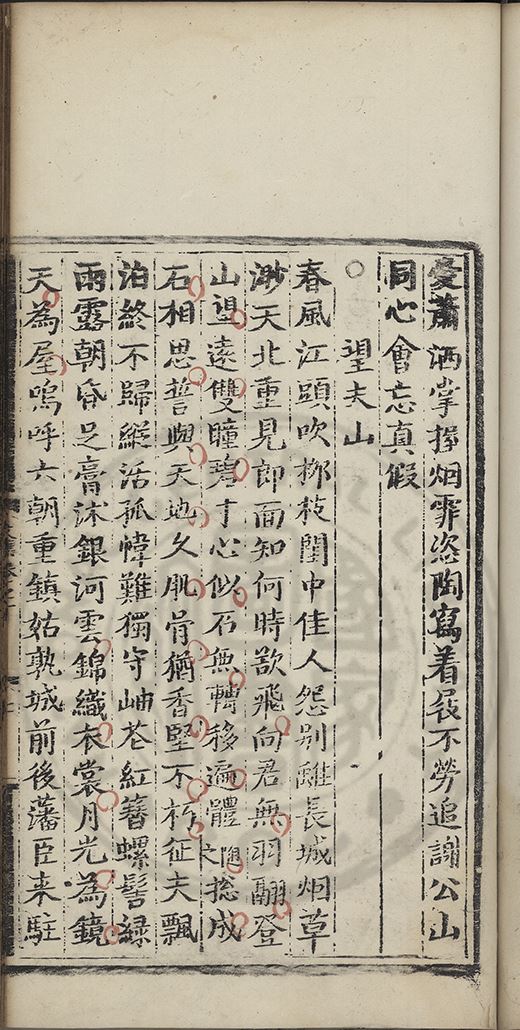 憂蕭洒掌握烟霏恣陶寫着屐不勞追謝公山
同心會忘真假
○望夫山
春風江頭吹柳枝閨中佳人怨别離長城烟草
渺天北重見郎面知何時欲飛向君無羽翮登
山望遠雙瞳碧寸心似石無轉移遍體隨捻成
石相思誓與天地久肌骨猶香堅不朽征夫飄
泊終不歸縱活孤幃難獨守岫花紅簪螺髻緑
雨露朝昏足膏沐銀河雲錦織衣裳月光為鏡
天為屋嗚呼六朝重鎮姑孰城前後藩臣来駐